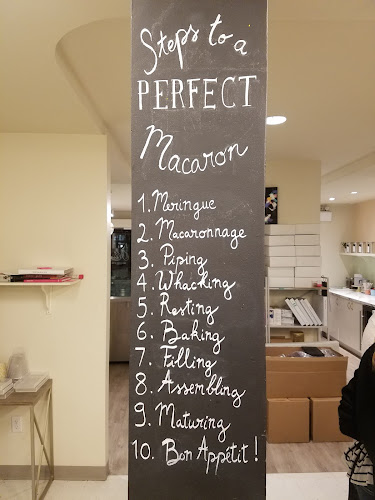 Steps to a
PERFECT
Macaron
1. Meringue
2. Macaronnage
3. Piping
4. Whacking
5. Resting
6. Baking
7. Filling
8. Assembling
9. Maturing
10. Bon Appétit!